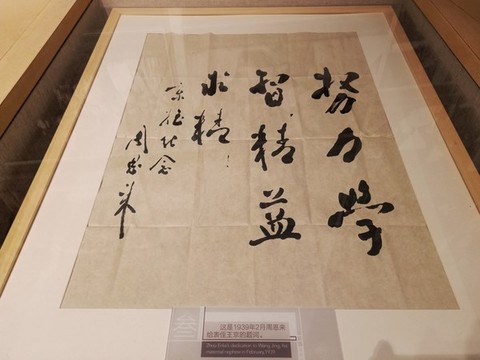 努力學
習精益
求精！
京侄纪念
周恩来
叁
这是1939年2月周恩来
给表侄王京的题词。
Zhou Enlai's dedication to Wang Jing, his
maternal nephew in February 1939